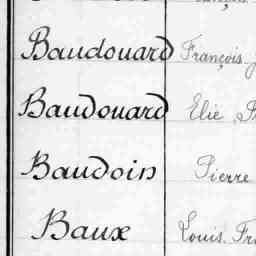 Baudouard François
Baudouard Elie
Baudoin Pierre
Baux Louis. Fr